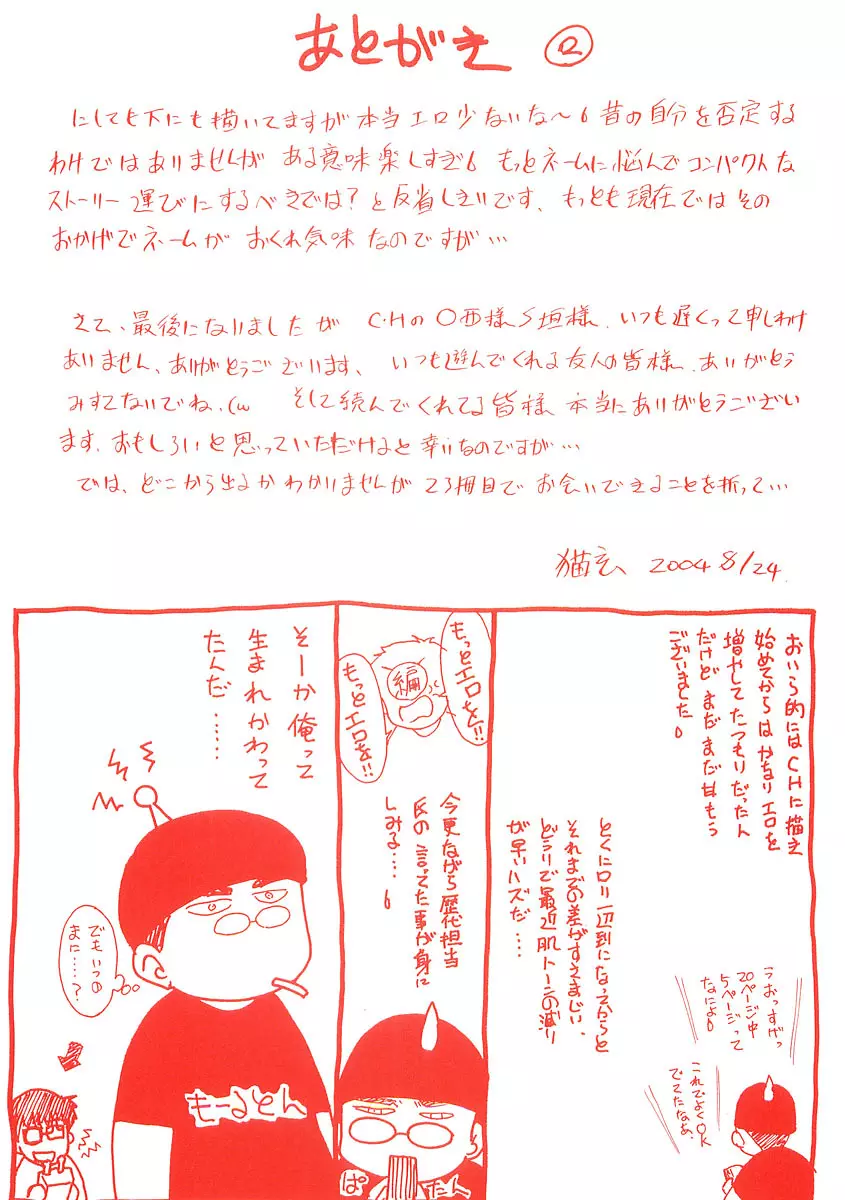 あとがき ②
にしても下にも描いてますが本当エロ少ないな〜。昔の自分を否定する
わけではありませんが ある意味楽しすぎ。もっとネームに悩んでコンパクトな
ストーリー運びにするべきでは？と反省しきりです、もっとも現在ではその
おかげでネームが おくれ気味なのですが…
さて、最後になりましたが C・Hの〇西様 S垣様、いつも遅くって申しわけ
ありません、ありがとうございます、いつも遊んでくれる友人の皆様、ありがとう
みすてないでね、(ω そして読んでくれてる皆様 本当にありがとうござい
ます、おもしろいと思っていただけると幸いなのですが…
では、どこから出るかわかりませんが 23冊目で お会いできることを祈って…
猫玄 2004 8/24
おいら的にはCHに描き
始めてからは かなりエロを
増やしてたつもりだったん
だけど まだまだ甘もう
ございました。
うおっすげっ
20ページ中
5ページって
なによ。
これでよくOK
でてたなあ、
とくにロリ一辺倒になってからと
それまでの差がすさまじい、
どうりで最近肌トーンの減り
が早いハズだ…
もっとエロを!!
編
もっとエロを!!
今更ながら歴代担当
氏の言ってた事が身に
しみる……。
ぱたん
そーか俺って
生まれかわって
たんだ……
でもいつの
まに……？
もーるとん